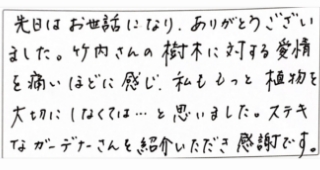 先日はお世話になり、ありがとうござい
ました。竹内さんの樹木に対する愛情
を痛いほどに感じ、私ももっと植物を
大切にしなくては…と思いました。ステキ
なガーデナーさんを紹介いただき感謝です。